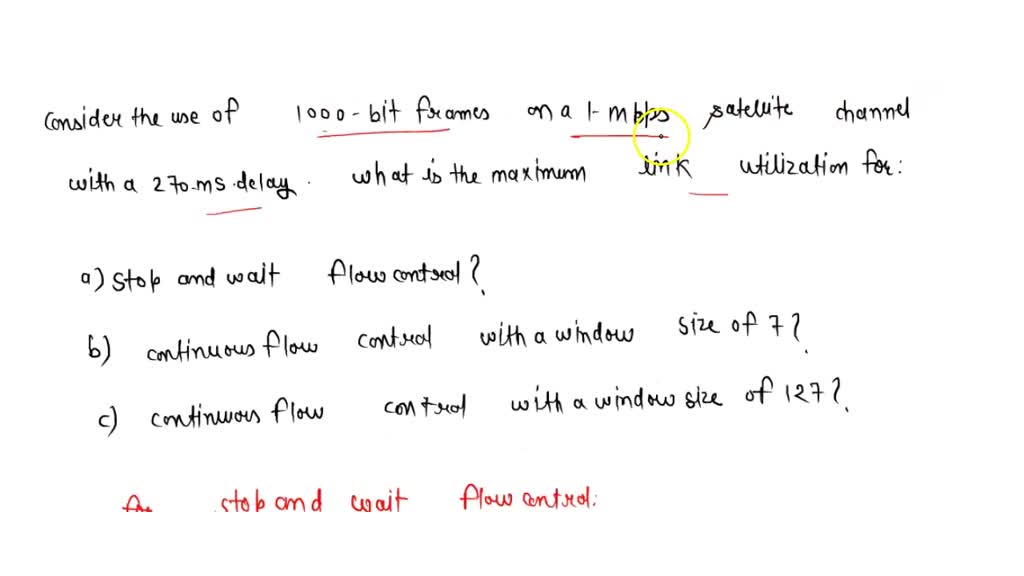 consider the use of 1000-bit frames on a 1-mbps satellite channel
with a 270-ms.delay. what is the maximum link utilization for:
a) stop and wait flow control?
b) continuous flow control with a window size of 7?
c) continuous flow control with a window size of 127?
stop and wait flow control: